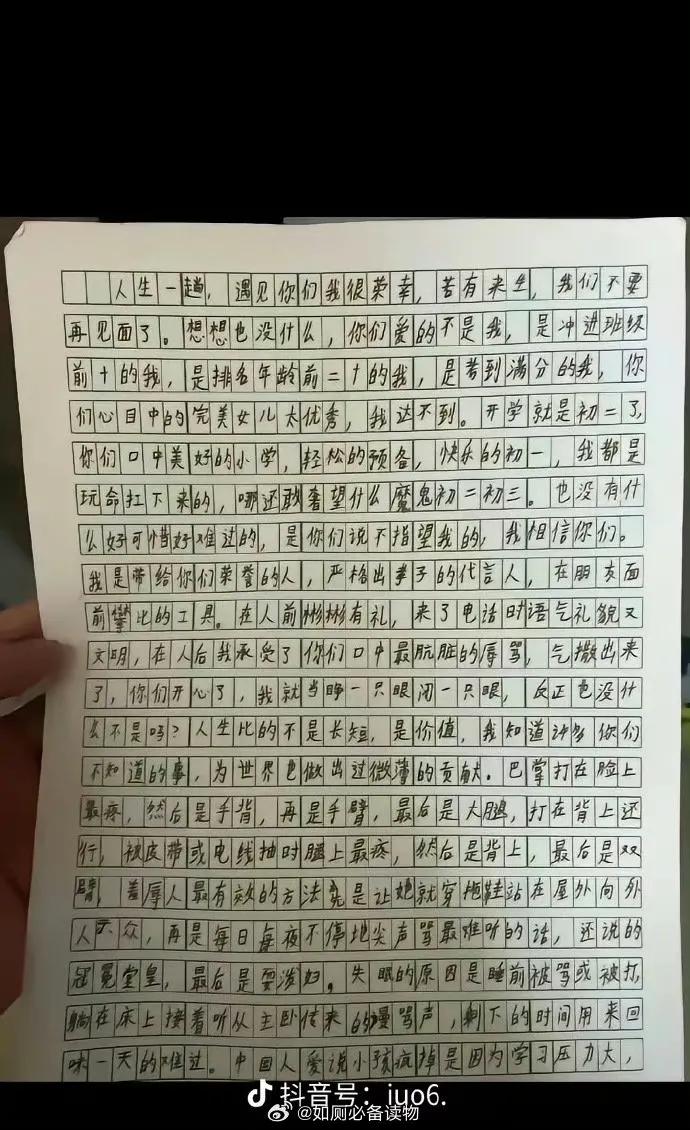 人生一趟，遇见你们我很荣幸，若有来生，我们不要
再见面了。想想也没什么，你们爱的不是我，是冲进班级
前十的我，是排名年龄前二十的我，是考到满分的我，你
们心目中的完美女儿太优秀，我达不到。开学就是初二了，
你们口中美好的小学，轻松的预备，快乐的初一，我都是
玩命扛下来的，哪还敢奢望什么魔鬼初二初三。也没有什
么好可惜好难过的，是你们说不指望我的，我相信你们。
我是带给你们荣誉的人，严格出孝子的代言人，在朋友面
前攀比的工具。在人前彬彬有礼，来了电话时语气礼貌又
文明，在人后我承受了你们口中最肮脏的辱骂，气撒出来
了，你们开心了，我就当睁一只眼闭一只眼，反正也没什
么不是吗？人生比的不是长短，是价值，我知道许多你们
不知道的事，为世界也做出过微薄的贡献。巴掌打在脸上
最疼，然后是手背，再是手臂，最后是大腿，打在背上还
行，被皮带或电线抽时腿上最疼，然后是背上，最后是双
臂，羞辱人最有效的方法竟是让她就穿拖鞋站在屋外向外
人示众，再是每日每夜不停地尖声骂最难听的话，还说的
冠冕堂皇，最后是耍泼妇。失眠的原因是睡前被骂或被打，
躺在床上接着听从主卧传来的谩骂声，剩下的时间用来回
味一天的难过。中国人爱说小孩疯掉是因为学习压力大，
抖音号：iuo6.
@如厕必备读物